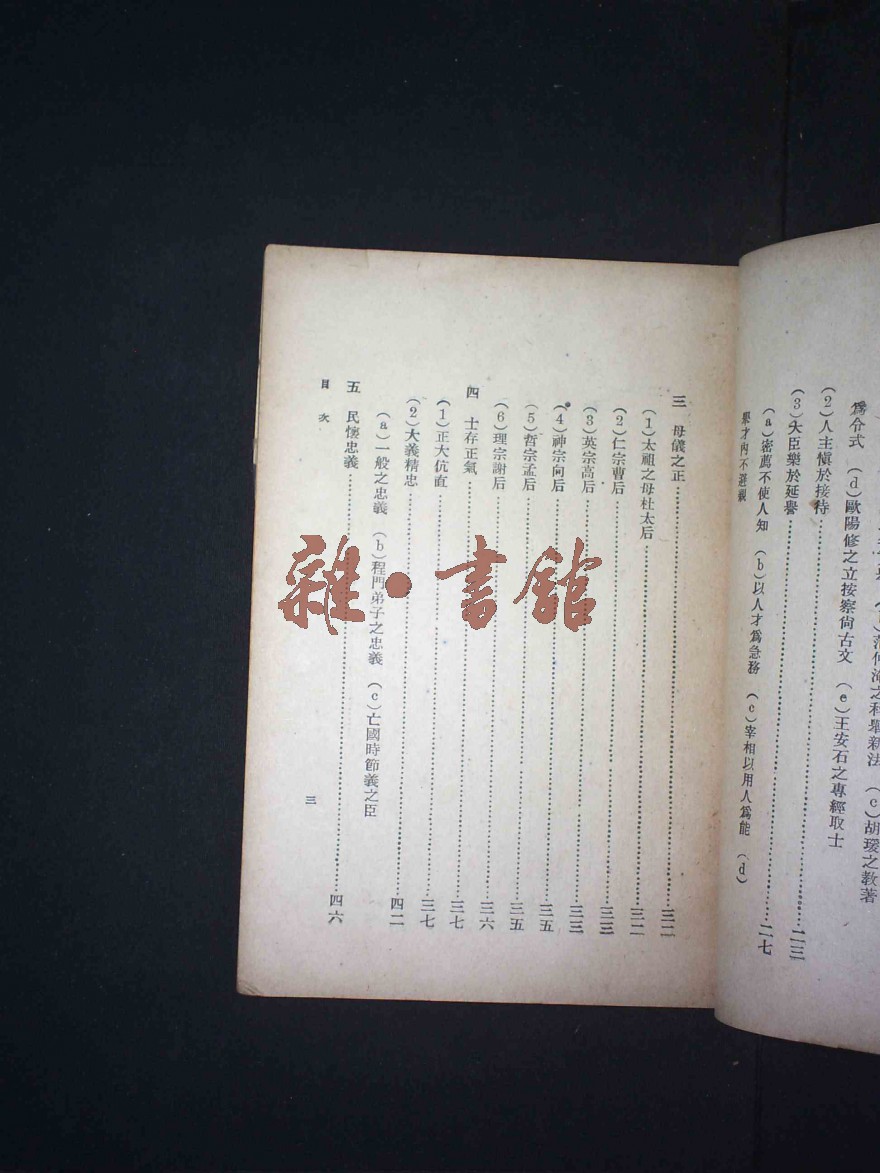 之科舉新法 (c)胡瑗之教著
爲令式 (d)歐陽修之立按察尙古文 (e)王安石之專經取士
(2)人主愼於接待……二三
(3)大臣樂於延譽……二七
(a)密薦不使人知 (b)以人才爲急務 (c)宰相以用人爲能 (d)
舉才內不避親
三 母儀之正……三二
(1)太祖之母杜太后……三二
(2)仁宗曹后……三三
(3)英宗高后……三三
(4)神宗向后……三五
(5)哲宗孟后……三五
(6)理宗謝后……三六
四 士存正氣……三七
(1)正大伉直……三七
(2)大義精忠……四二
(a)一般之忠義 (b)程門弟子之忠義 (c)亡國時節義之臣
五 民懷忠義……四六
目次
三
雜·書館